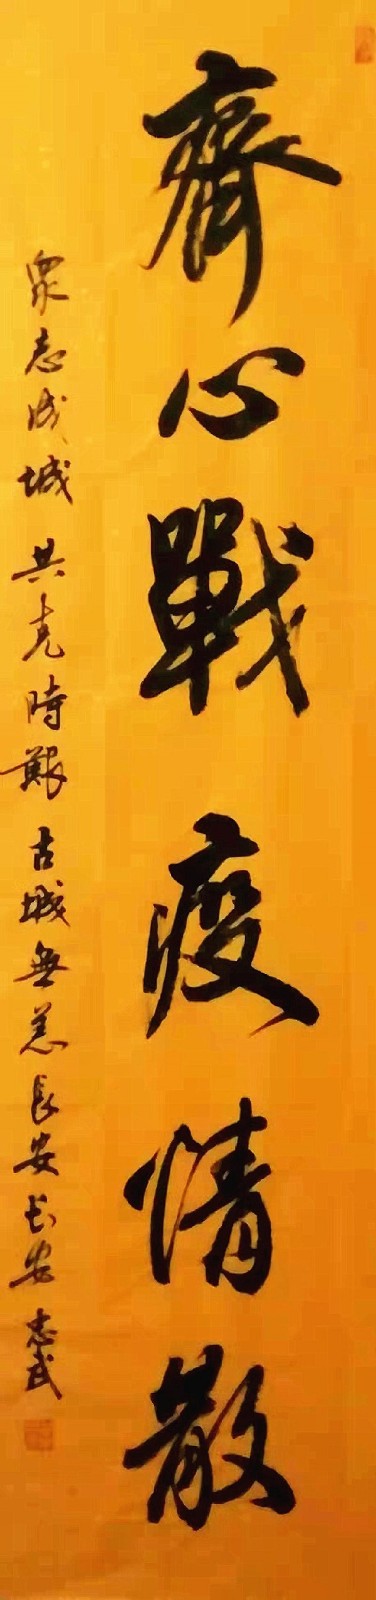 齊心戰疫情散
眾志成城 共克時艱 古城無恙長安长安 志武